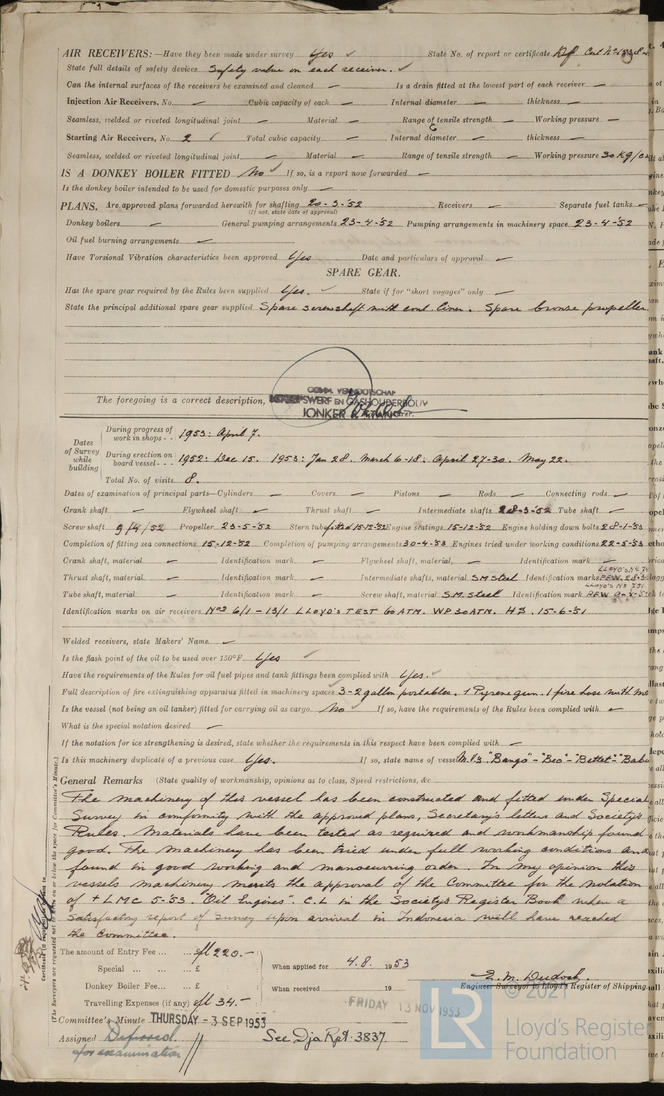 AIR RECEIVERS:—Have they been made under survey Yes ✓ State No. of report or certificate
State full details of safety devices Safety valve on each receiver. ✓
Can the internal surfaces of the receivers be examined and cleaned — Is a drain fitted at the lowest part of each receiver —
Injection Air Receivers, No. — Cubic capacity of each — Internal diameter — thickness —
Seamless, welded or riveted longitudinal joint — Material — Range of tensile strength — Working pressure —
Starting Air Receivers, No. 2 ✓ Total cubic capacity — Internal diameter — thickness —
Seamless, welded or riveted longitudinal joint — Material — Range of tensile strength — Working pressure 30 Kg/
IS A DONKEY BOILER FITTED No ✓ If so, is a report now forwarded —
Is the donkey boiler intended to be used for domestic purposes only —
PLANS. Are approved plans forwarded herewith for shafting 20-3-52 Receivers — Separate fuel tanks —
(If not, state date of approval)
Donkey boilers — General pumping arrangements 23-4-52 Pumping arrangements in machinery space 23-4-52
Oil fuel burning arrangements —
Have Torsional Vibration characteristics been approved Yes Date and particulars of approval —
SPARE GEAR.
Has the spare gear required by the Rules been supplied Yes. ✓ State if for "short voyages" only —
State the principal additional spare gear supplied Spare screwshaft with cont. liner. Spare bronze propeller.
The foregoing is a correct description,
COMM. VENNOOTSCHAP
SWERF EN GASHOUDERBOUW
JONKER &
Dates of Survey while building
During progress of work in shops - - 1953: April 7.
During erection on board vessel - - - 1952: Dec 15. 1953: Jan 28. March 6-18. April 27-30. May 22.
Total No. of visits 8.
Dates of examination of principal parts—Cylinders — Covers — Pistons — Rods — Connecting rods —
Crank shaft — Flywheel shaft — Thrust shaft — Intermediate shafts 28-3-52 Tube shaft —
Screw shaft 9/4/52 Propeller 23-5-52 Stern tube fitted 15-12-52 Engine seatings 15-12-52 Engine holding down bolts 28-1-53
Completion of fitting sea connections 15-12-52 Completion of pumping arrangements 30-4-53 Engines tried under working conditions 22-5-53
Crank shaft, material — Identification mark — Flywheel shaft, material — Identification mark —
Thrust shaft, material — Identification mark — Intermediate shafts, material SM Steel Identification marks
Tube shaft, material — Identification mark — Screw shaft, material S.M. Steel Identification mark
Identification marks on air receivers Nos 6/1 - 13/1 LLOYD'S TEST 60 ATM. WP 30 ATM. HS. 15-6-51
Welded receivers, state Makers' Name —
Is the flash point of the oil to be used over 150°F. Yes ✓
Have the requirements of the Rules for oil fuel pipes and tank fittings been complied with Yes. ✓
Full description of fire extinguishing apparatus fitted in machinery spaces 3-2 gallon portables. 1 Pyrene gun. 1 fire hose with
Is the vessel (not being an oil tanker) fitted for carrying oil as cargo. No ✓ If so, have the requirements of the Rules been complied with —
What is the special notation desired —
If the notation for ice strengthening is desired, state whether the requirements in this respect have been complied with —
Is this machinery duplicate of a previous case Yes. If so, state name of vessel M.V's "Bango"-"Beo"-"Bettet"-
General Remarks (State quality of workmanship, opinions as to class, Speed restrictions, &c
The machinery of this vessel has been constructed and fitted under Special
Survey in conformity with the approved plans, Secretary's letters and Society's
Rules. Materials have been tested as required and workmanship found
good. The machinery has been tried under full working conditions and
found in good working and manoeuvring order. In my opinion this
vessels machinery merits the approval of the Committee for the notation
of + LMC 5-53. "Oil Engines". C.L in the Society's Register Book when a
Satisfactory report of Survey upon arrival in Indonesia will have reached
the Committee.
The amount of Entry Fee ... fl 220.-
Special ... ... £
Donkey Boiler Fee... £
Travelling Expenses (if any) fl 34.-
When applied for 4.8. 1953
When received 19
Engineer Surveyor to Lloyd's Register of Shipping
FRIDAY 13 NOV 1953
Committee's Minute THURSDAY - 3 SEP 1953
Assigned Deferred
for examination
See Dja Rpt. 3837.
© 2021
LR
Lloyd's Register
Foundation